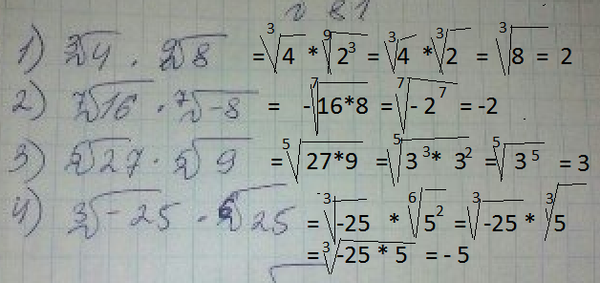 № 81
1) ∛4 · ⁹√8 = ∛4 * ⁹√2³ = ∛4 * ∛2 = ∛8 = 2
2) ⁷√16 · ⁷√-8 = -⁷√16*8 = ⁷√-2⁷ = -2
3) ⁵√27 · ⁵√9 = ⁵√27*9 = ⁵√3³* 3² = ⁵√3⁵ = 3
4) ∛-25 · ⁶√25 = ∛-25 * ⁶√5² = ∛-25 * ∛5
= ∛-25 * 5 = - 5